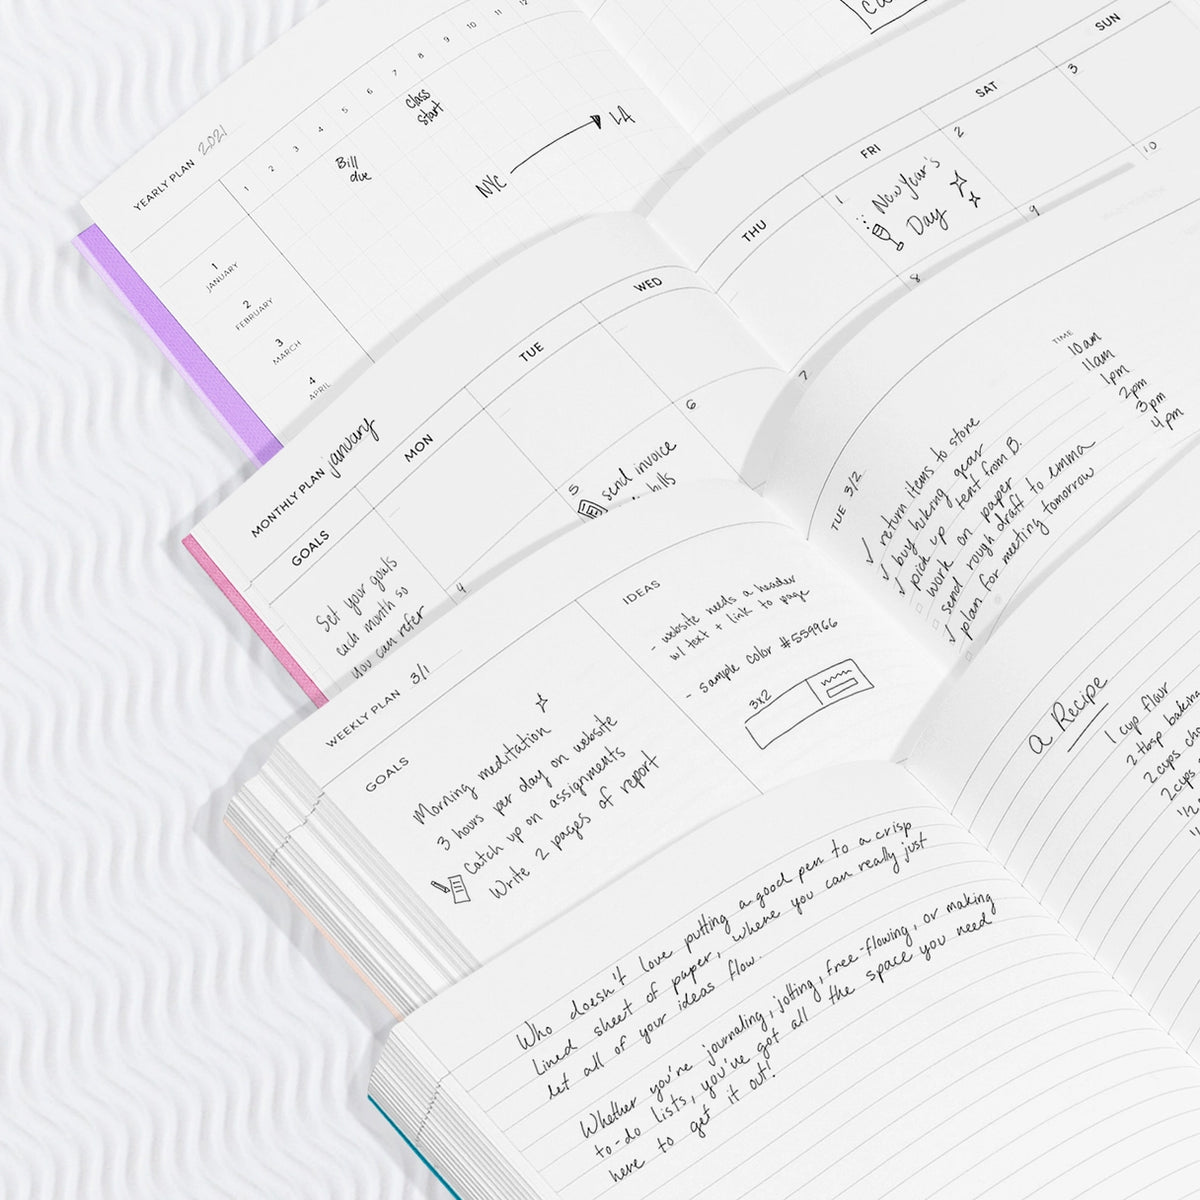 YEARLY PLAN 2021
1 2 3 4 5 6 7 8 9 10 11 12
Class
start
Bill
due
NYC
LA
1
JANUARY
2
FEBRUARY
3
MARCH
4
APRIL
MONTHLY PLAN january
GOALS
MON
TUE
WED
THU
FRI
SAT
SUN
Set your goals
each month so
you can refer
4
5
send invoice
bills
6
7
1
New Year's
Day
8
2
9
3
10
WEEKLY PLAN 3/1
GOALS
Morning meditation
3 hours per day on website
Catch up on assignments
Write 2 pages of report
IDEAS
- website needs a header
w/ text + link to page
- sample color #559966
3x2
TUE 3/2
TIME
return items to store
buy hiking gear
pick up tent from B.
work on paper
send rough draft to emma
plan for meeting tomorrow
10am
11am
1pm
2pm
3pm
4pm
Who doesn't love putting a good pen to a crisp
lined sheet of paper, where you can really just
let all of your ideas flow.
Whether you're journaling, jotting, free-flowing, or making
to-do lists, you've got all the space you need
here to get it out!
a Recipe
1 cup flour
2 tbsp baking
2 cups
2 cups
1/2